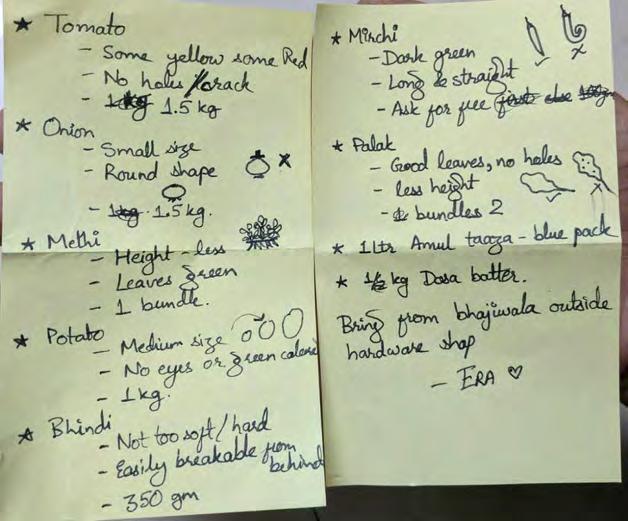 ★ Tomato
- Some yellow some Red
- No holes/crack
- 1.5 kg
★ Onion
- Small size
- Round shape
- 1.5 kg.
★ Methi
- Height - less
- Leaves green
- 1 bundle.
★ Potato
- Medium size
- No eyes or green
- 1 kg.
★ Bhindi
- Not too soft/hard
- Easily breakable from
behind
- 350 gm
★ Mirchi
- Dark green
- Long & straight
- Ask for free
★ Palak
- Good leaves, no holes
- less height
- bundles 2
★ 1 Ltr Amul taaza - blue pack
★ kg Dosa batter.
Bring from bhajiwala outside
hardware shop
- ERA ♡